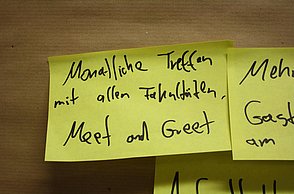 Monatliche Treffen
mit allen Fakultäten,
Meet and Greet
Mehr
Gast
am